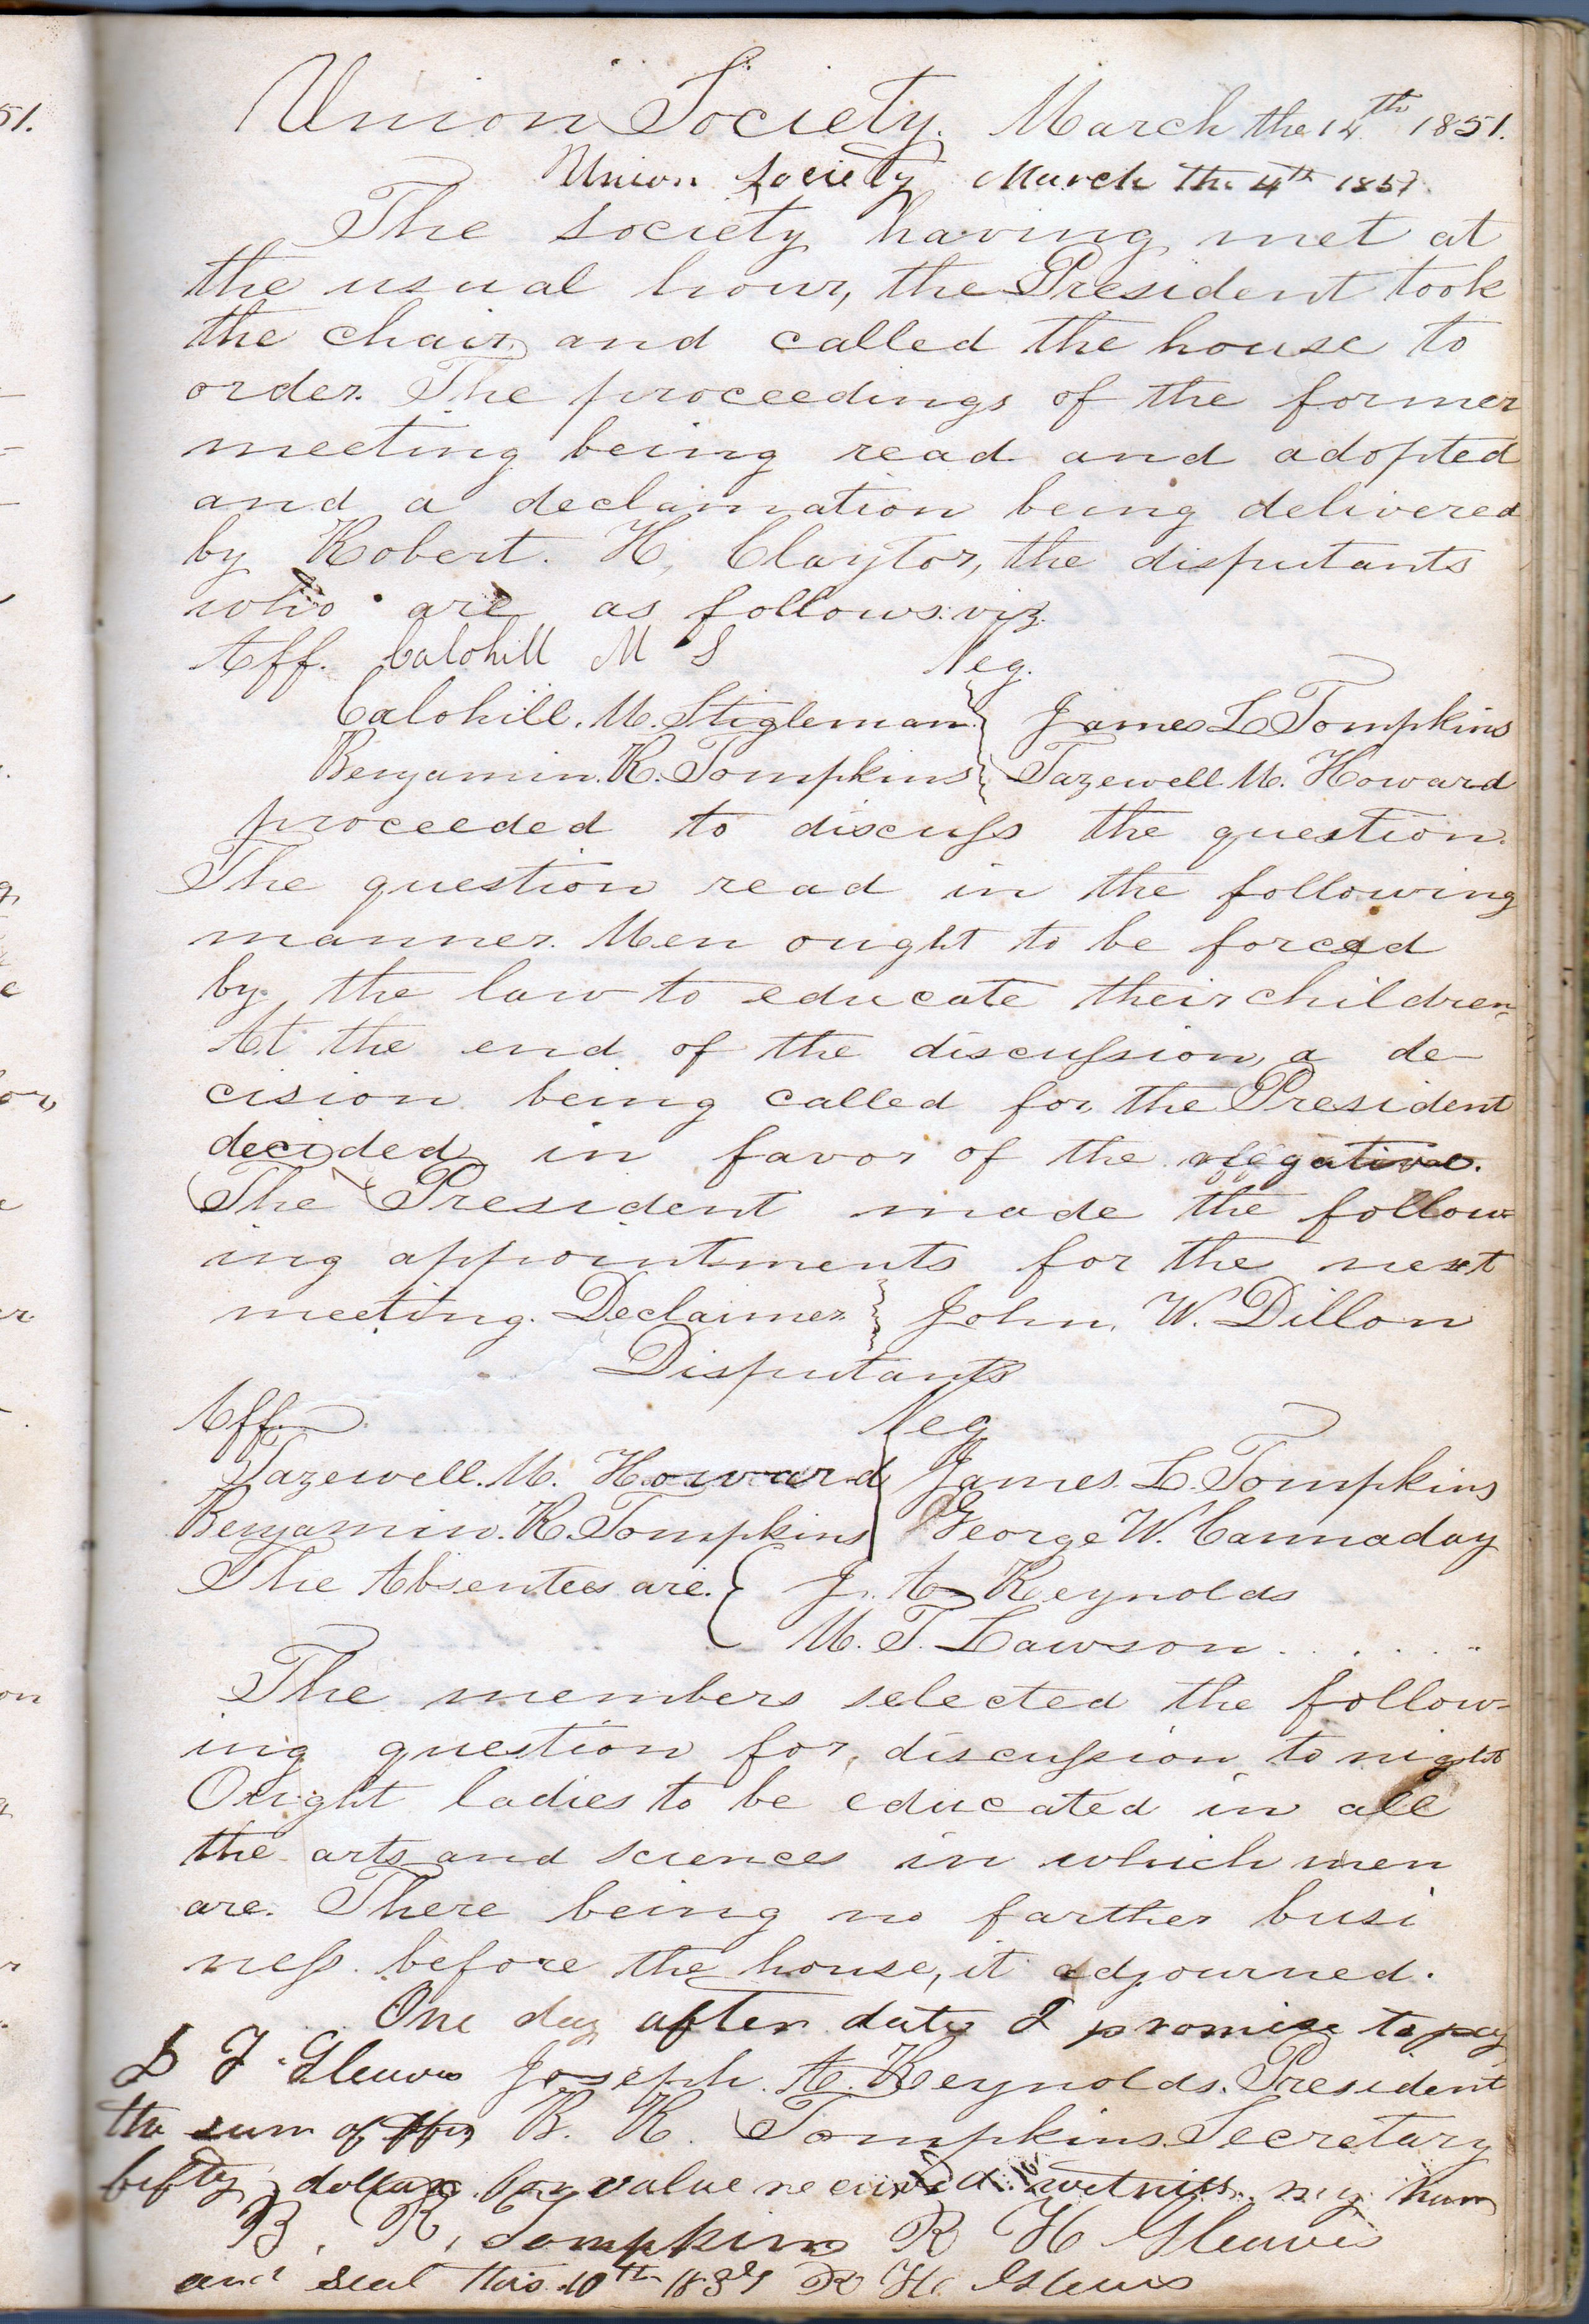 Union Society. March the 14th 1851.
Union Society March the 4th 1857.
The society having met at
the usual hour, the President took
the chair, and called the house to
order. The proceedings of the former
meeting being read and adopted
and a declamation being delivered
by Robert. H. Claytor, the disputants
who are as follows. viz.
Aff. Calohill M S Neg.
Calohill. M. Stigleman } James L Tompkins
Benjamin. R. Tompkins } Tazewell M. Howard
proceeded to discuss the question.
The question read in the following
manner. Men ought to be forced
by the law to educate their children
At the end of the discussion, a de-
cision being called for, the President
decided in favor of the negative.
The President made the follow-
ing appointments for the next
meeting. Declaimer } John. W. Dillon
Disputants
Aff. Neg
Tazewell. M. Howard James. L. Tompkins
Benjamin. R. Tompkins George W. Cannaday
The Absentees are. { J. A. Reynolds
M. T. Lawson
The members selected the follow-
ing question for, discussion to night
Ought ladies to be educated in all
the arts and sciences in which men
are. There being no farther busi
ness. before the house, it adjourned.
One day after date I promise to pay
Gleaves Joseph. A. Reynolds. President
the sum of B. R. Tompkins Secretary
fifty dollars for value received. witness my han
B. R. Tompkins R H Gleaves
and seal this 10th R H. Gleaves
51.